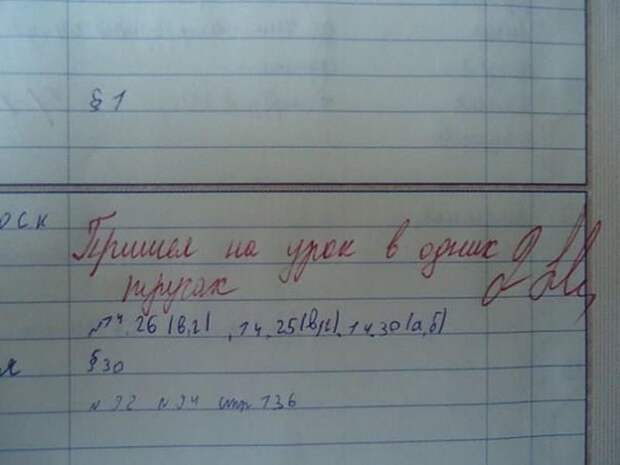 § 1
оск
Пришел на урок в одних
трусах
№14.26(в,г), 14.25(в,г), 14.30(а,б)
§30
№92 №94 стр 136